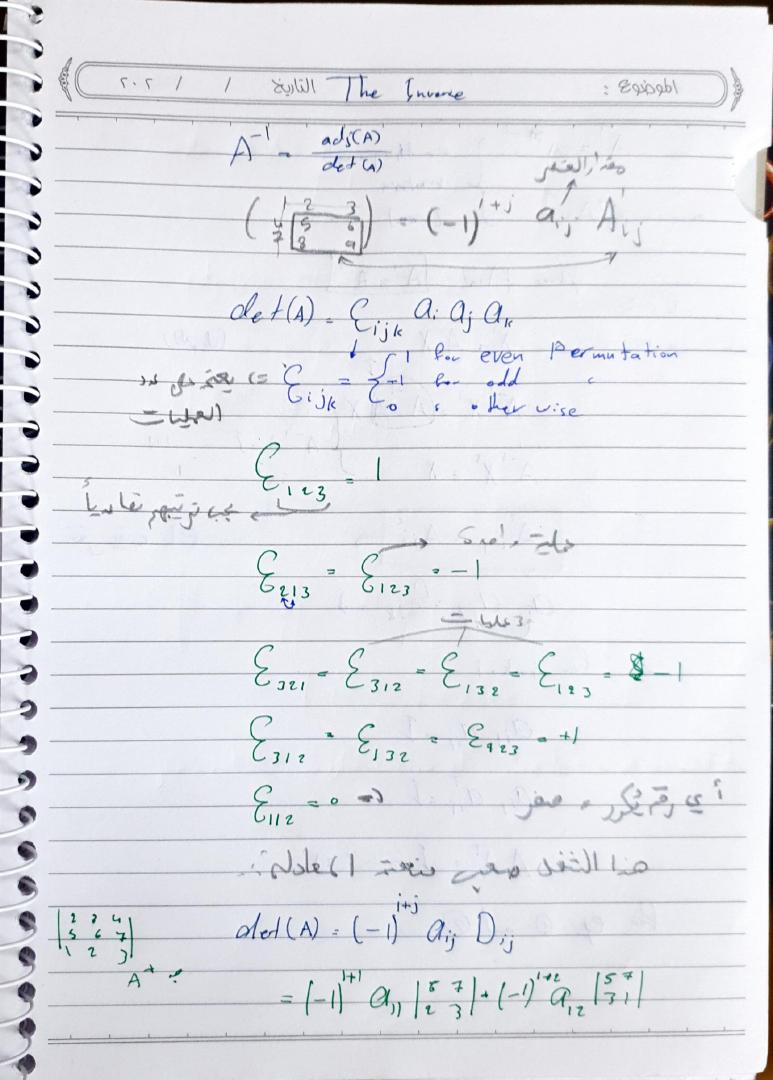 الموضوع : The Inverse التاريخ / / ٢٠٢
A⁻¹ = adj(A) / det(A)
مقدار العنصر
( 1 2 3
4 5 6
7 8 9 ) = (-1)^{i+j} a_{ij} A_{ij}
det(A) = ε_{ijk} a_i a_j a_k
ε_{ijk} = { 1 for even Permutation
-1 for odd "
0 otherwise
=> يعتمد على عدد
العمليات
ε_{123} = 1
يجب ترتيبهم
عملية واحدة
ε_{213} = ε_{123} = -1
3 عمليات
ε_{321} = ε_{312} = ε_{132} = ε_{123} = -1
ε_{312} = ε_{132} = ε_{123} = +1
ε_{112} = 0 => أي رقم يُكرر = صفر
هذا الشغل صعب المعادلة :
det(A) = (-1)^{i+j} a_{ij} D_{ij}
| 2 3 4
5 6 7
1 2 3 |
A
= (-1)^{1+1} a_{11} | 6 7
2 3 | + (-1)^{1+2} a_{12} | 5 7
3 1 |